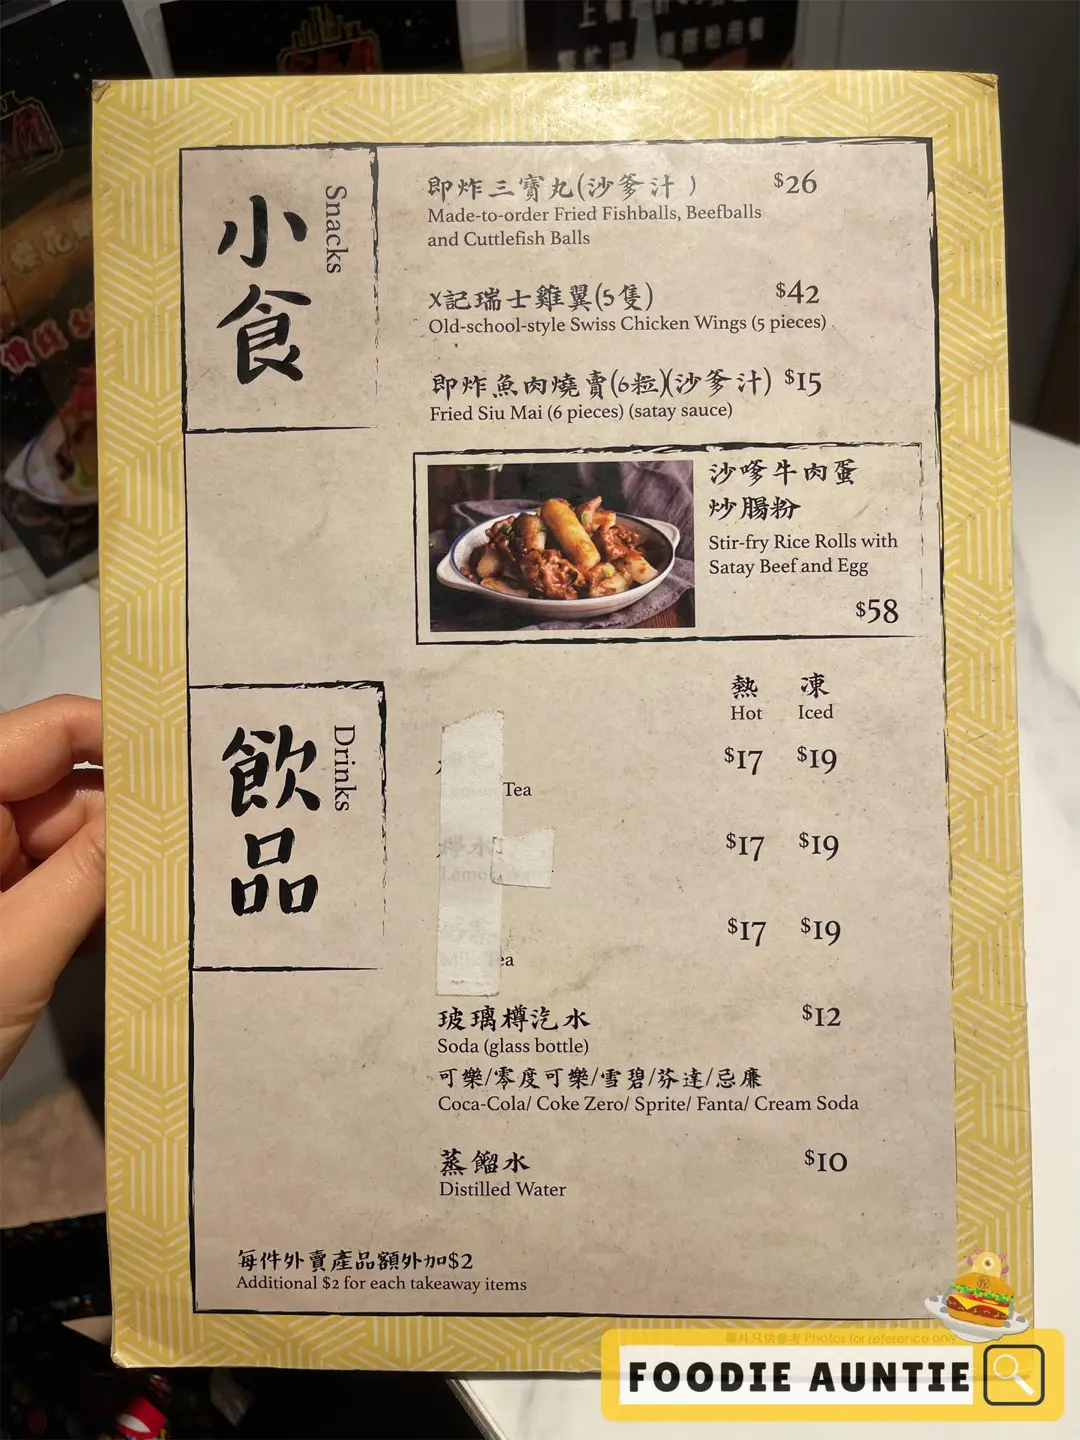 小食
Snacks
即炸三寶丸(沙爹汁)
$26
Made-to-order Fried Fishballs, Beefballs
and Cuttlefish Balls
X記瑞士雞翼(5隻)
$42
Old-school-style Swiss Chicken Wings (5 pieces)
即炸魚肉燒賣(6粒)(沙爹汁)
$15
Fried Siu Mai (6 pieces) (satay sauce)
沙嗲牛肉蛋
炒腸粉
Stir-fry Rice Rolls with
Satay Beef and Egg
$58
飲品
Drinks
熱 凍
Hot Iced
$17 $19
Lemon Tea
檸水
$17 $19
Lemon Water
$17 $19
玻璃樽汽水
$12
Soda (glass bottle)
可樂/零度可樂/雪碧/芬達/忌廉
Coca-Cola/ Coke Zero/ Sprite/ Fanta/ Cream Soda
蒸餾水
$10
Distilled Water
每件外賣產品額外加$2
Additional $2 for each takeaway items
圖片只供參考 Photos for reference only
FOODIE AUNTIE